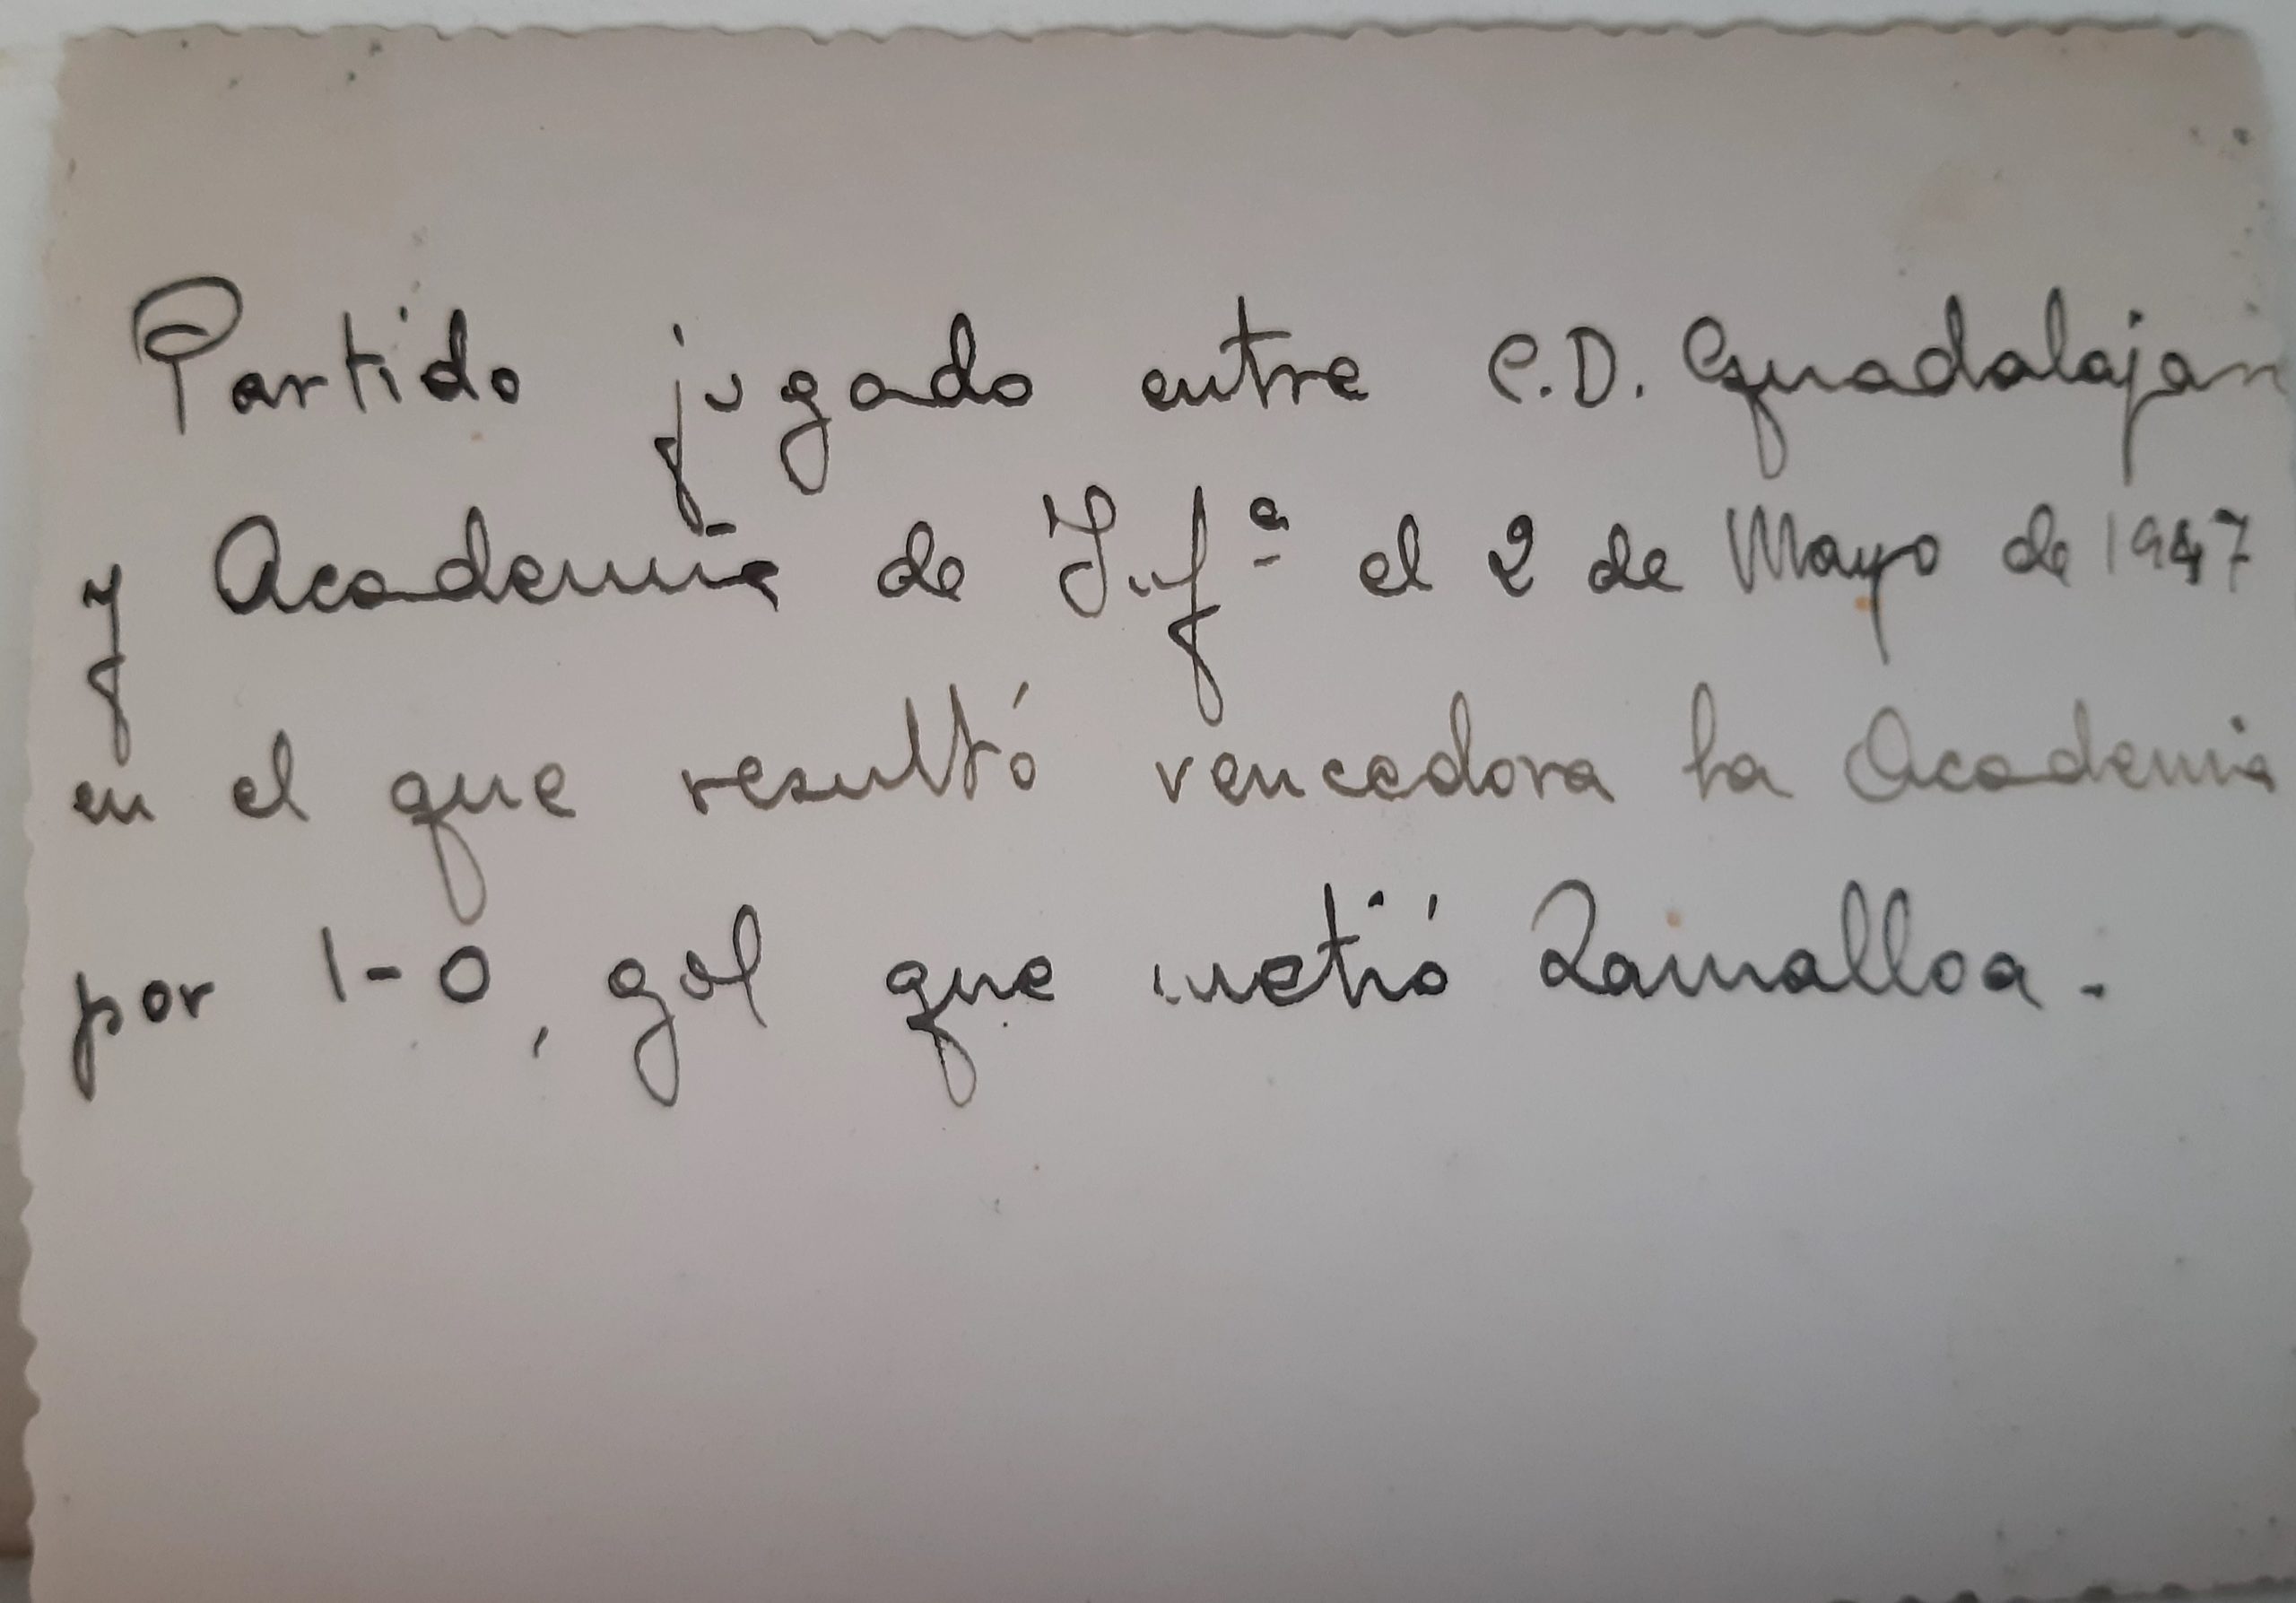 Partido jugado entre C.D. Guadalajar
y Academia de Infª el 2 de Mayo de 1947
en el que resultó vencedora la Academia
por 1-0, gol que metió Ramalloa.